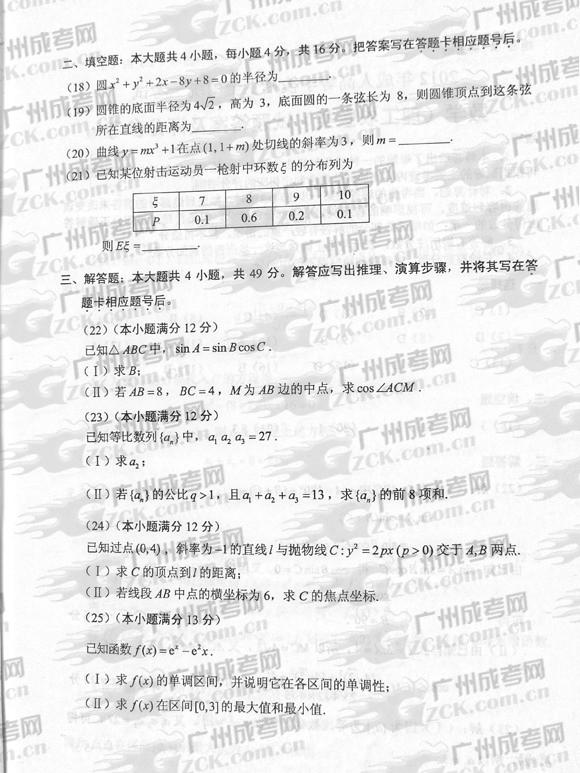 二、填空题：本大题共4小题，每小题4分，共16分。把答案写在答题卡相应题号后。
（18）圆x²+y²+2x-8y+8=0的半径为________.
（19）圆锥的底面半径为4√2，高为3，底面圆的一条弦长为8，则圆锥顶点到这条弦
所在直线的距离为________.
（20）曲线y=mx³+1在点(1,1+m)处切线的斜率为3，则m=________.
（21）已知某位射击运动员一枪射中环数ξ的分布列为
ξ 7 8 9 10
P 0.1 0.6 0.2 0.1
则Eξ=________.
三、解答题：本大题共4小题，共49分。解答应写出推理、演算步骤，并将其写在答
题卡相应题号后。
（22）（本小题满分12分）
已知△ABC中，sinA=sinBcosC.
（Ⅰ）求B；
（Ⅱ）若AB=8，BC=4，M为AB边的中点，求cos∠ACM.
（23）（本小题满分12分）
已知等比数列{aₙ}中，a₁a₂a₃=27.
（Ⅰ）求a₂；
（Ⅱ）若{aₙ}的公比q>1，且a₁+a₂+a₃=13，求{aₙ}的前8项和.
（24）（本小题满分12分）
已知过点(0,4)，斜率为-1的直线l与抛物线C:y²=2px(p>0)交于A,B两点.
（Ⅰ）求C的顶点到l的距离；
（Ⅱ）若线段AB中点的横坐标为6，求C的焦点坐标.
（25）（本小题满分13分）
已知函数f(x)=eˣ-e²x.
（Ⅰ）求f(x)的单调区间，并说明它在各区间的单调性；
（Ⅱ）求f(x)在区间[0,3]的最大值和最小值.
广州成考网
GZCK.com.cn